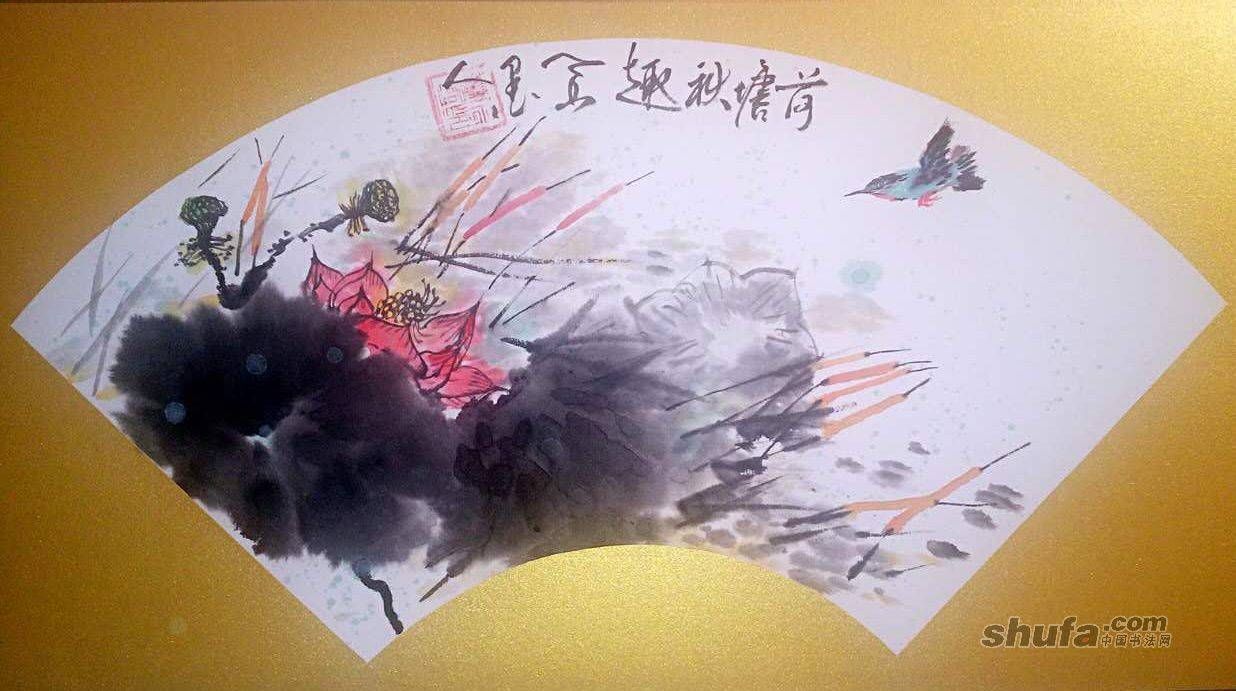 荷塘秋趣 墨人
shufa.com
中国书法网